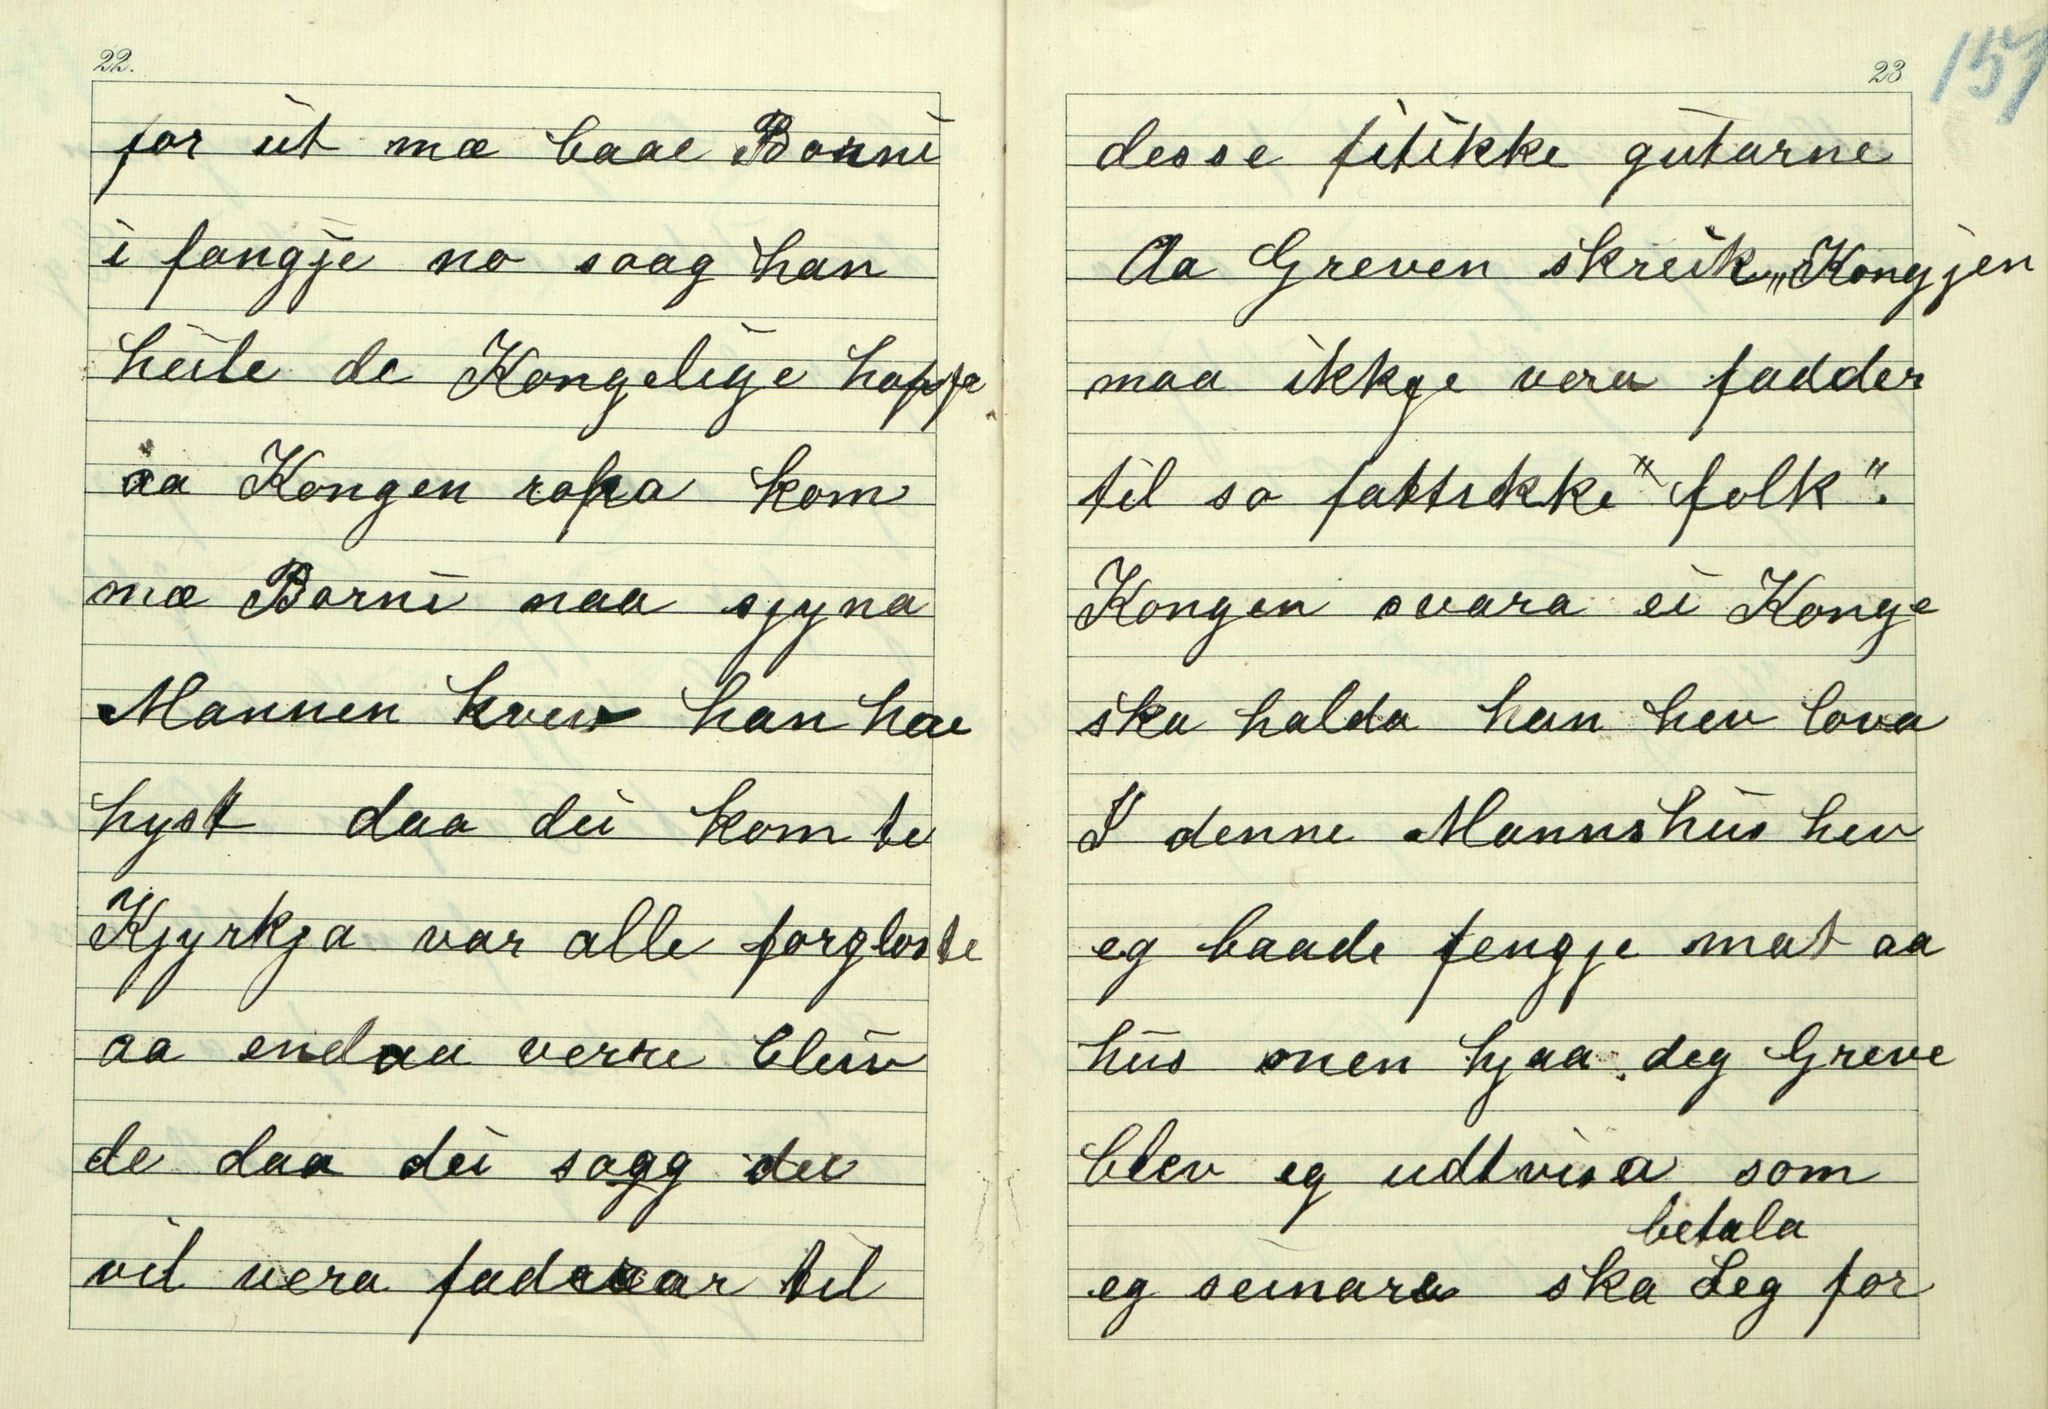 22.
for út mæ baae Borni
i fangje no saag han
heile de Kongelige hopja
aa Kongen ropa kom
mæ Borni naa sjyna
Mannen kvev han hav
hyst daa dei kom te
Kjyrkja var alle forgloste
aa endaa verre bleiv
de daa dei sagg dei
vil vera fadrar til
23
151
desse fitikke gutarne
Aa Greven skreik „Kongjen
maa ikkje vera fadder
til so fattikke" folk".
Kongen svara ei Konge
ska halda han hev lova
I denne Mannshus hev
eg baade fengje mat aa
hus men hjaa deg Greve
blev eg udtvisa som
betala
eg seinare ska deg for